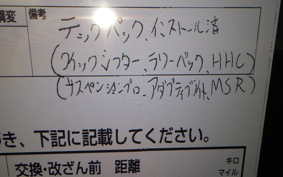 異変
備考
テックパック、インストール済
(クイックシフター、ラリーパック、HHC)
(サスペンションプロ、アダプティブライト、MSR)
き、下記に記載してください。
交換・改ざん前 距離
キロ
マイル